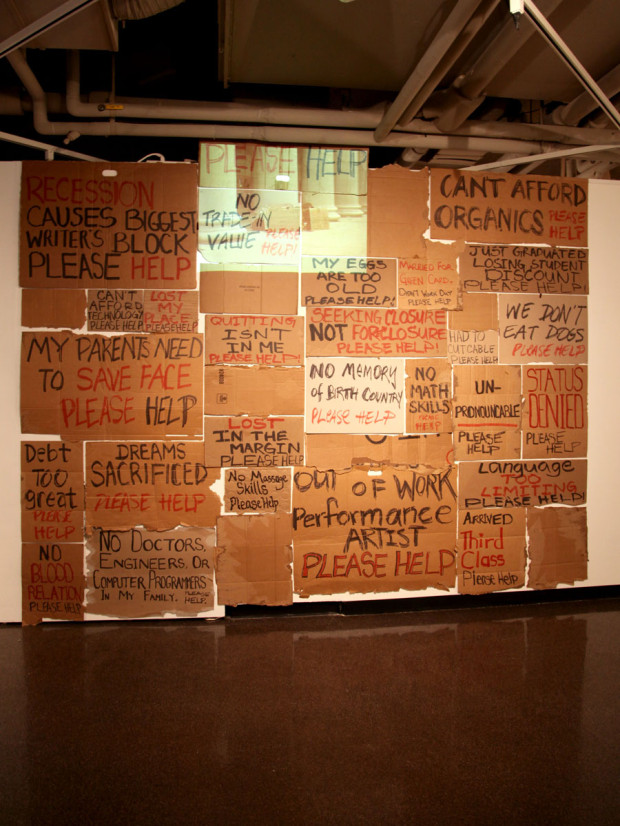 PLEASE HELP
RECESSION
CAUSES BIGGEST
WRITER'S BLOCK
PLEASE HELP
NO
TRADE-IN
VALUE PLEASE
HELP!
CANT AFFORD
ORGANICS PLEASE
HELP
MY EGGS
ARE TOO
OLD
PLEASE HELP!
MARRIED FOR
GREEN CARD.
DIDN'T WORK OUT
PLEASE HELP
JUST GRADUATED
LOSING STUDENT
DISCOUNT
PLEASE HELP!
CAN'T
AFFORD
TECHNOLOGY
PLEASE HELP
LOST
MY
PLACE
PLEASE HELP
QUITTING
ISN'T
IN ME
PLEASE HELP!
SEEKING CLOSURE
NOT FORECLOSURE
PLEASE HELP!
HAD TO
CUT CABLE
PLEASE HELP
WE DON'T
EAT DOGS
PLEASE HELP
MY PARENTS NEED
TO SAVE FACE
PLEASE HELP
NO MEMORY
OF BIRTH COUNTRY
PLEASE HELP
NO
MATH
SKILLS
HELP
UN-
PRONOUNCABLE
PLEASE
HELP
STATUS
DENIED
PLEASE
HELP
LOST
IN THE
MARGIN
PLEASE HELP
Debt
TOO
great
PLEASE
HELP
DREAMS
SACRIFICED
PLEASE HELP
No Massage
Skills
Please Help
OUT OF WORK
Performance
ARTIST
PLEASE HELP
Language
TOO
LIMITING
PLEASE HELP!
ARRIVED
Third
Class
Please Help
NO
BLOOD
RELATION
PLEASE HELP
NO DOCTORS,
ENGINEERS, OR
COMPUTER PROGRAMMERS
IN MY FAMILY. PLEASE
HELP.